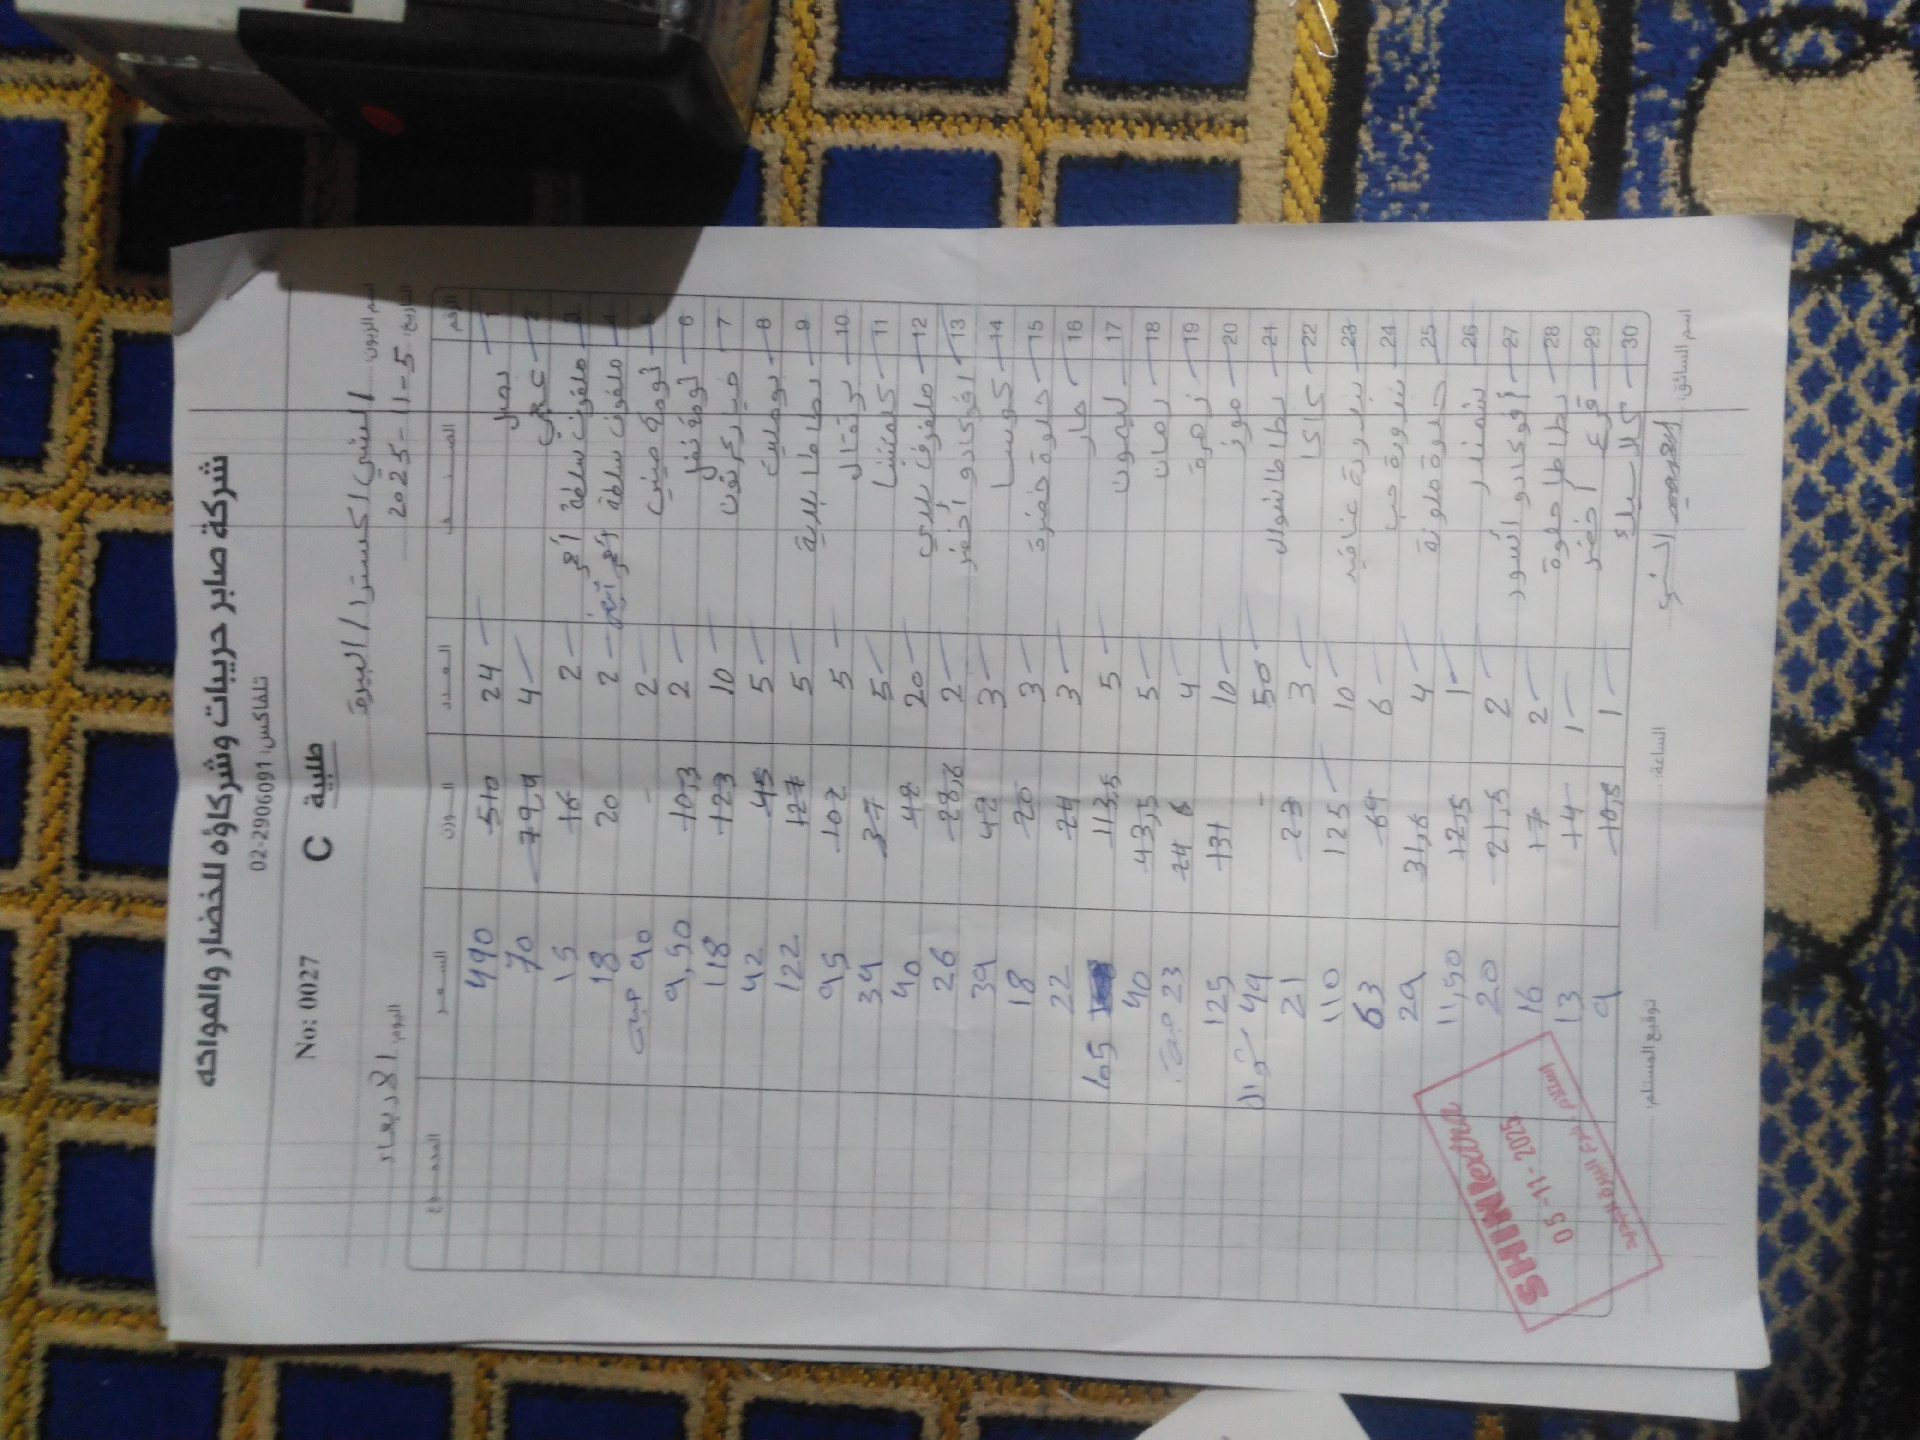 شركة صابر حريبات وشركاؤه للخضار والفواكه
تلفاكس: 02-2906091
No: 0027 C طلبية
اسم الزبون: الشني اكسترا / البيرة
اليوم: الاربعاء التاريخ: 5-11-2025
الرقم الصنف العدد الوزن السعر المجموع
1 بصل 24 510 490
2 4 79,9 70
3 ملفوف سلطة أحمر 2 16 15
4 ملفوف سلطة أبيض 2 20 18
5 ثومة 2 - 90 حبة
6 ثومة 2 10,3 9,50
7 خيار كرتون 10 123 118
8 بوملي 5 45 42
9 بطاطا 5 127 122
10 برتقال 5 102 95
11 كلمنتينا 5 37 34
12 ملفوف بلدي 20 42 40
13 افوكادو أخضر 2 28,6 26
14 كوسا 3 42 39
15 حلوة خضرة 3 20 18
16 حار 3 24 22
17 ليمون 5 113,5 105
18 رمان 5 43,5 40
19 زهرة 4 24 23 حبة
20 موز 10 131 125
21 بطاطا شوال 50 - 49 شوال
22 كاكا 3 23 21
23 بندورة عناقيد 10 125 110
24 بندورة حب 6 69 63
25 حلوة ملونة 4 31,6 29
26 شمندر 1 12,5 11,50
27 أفوكادو أسود 2 21,5 20
28 بطاطا حلوة 2 17 16
29 قرع أخضر 1 14 13
30 1 10,5 9
اسم السائق: الساعة: توقيع المستلم:
SHINI extra
05-11-2025